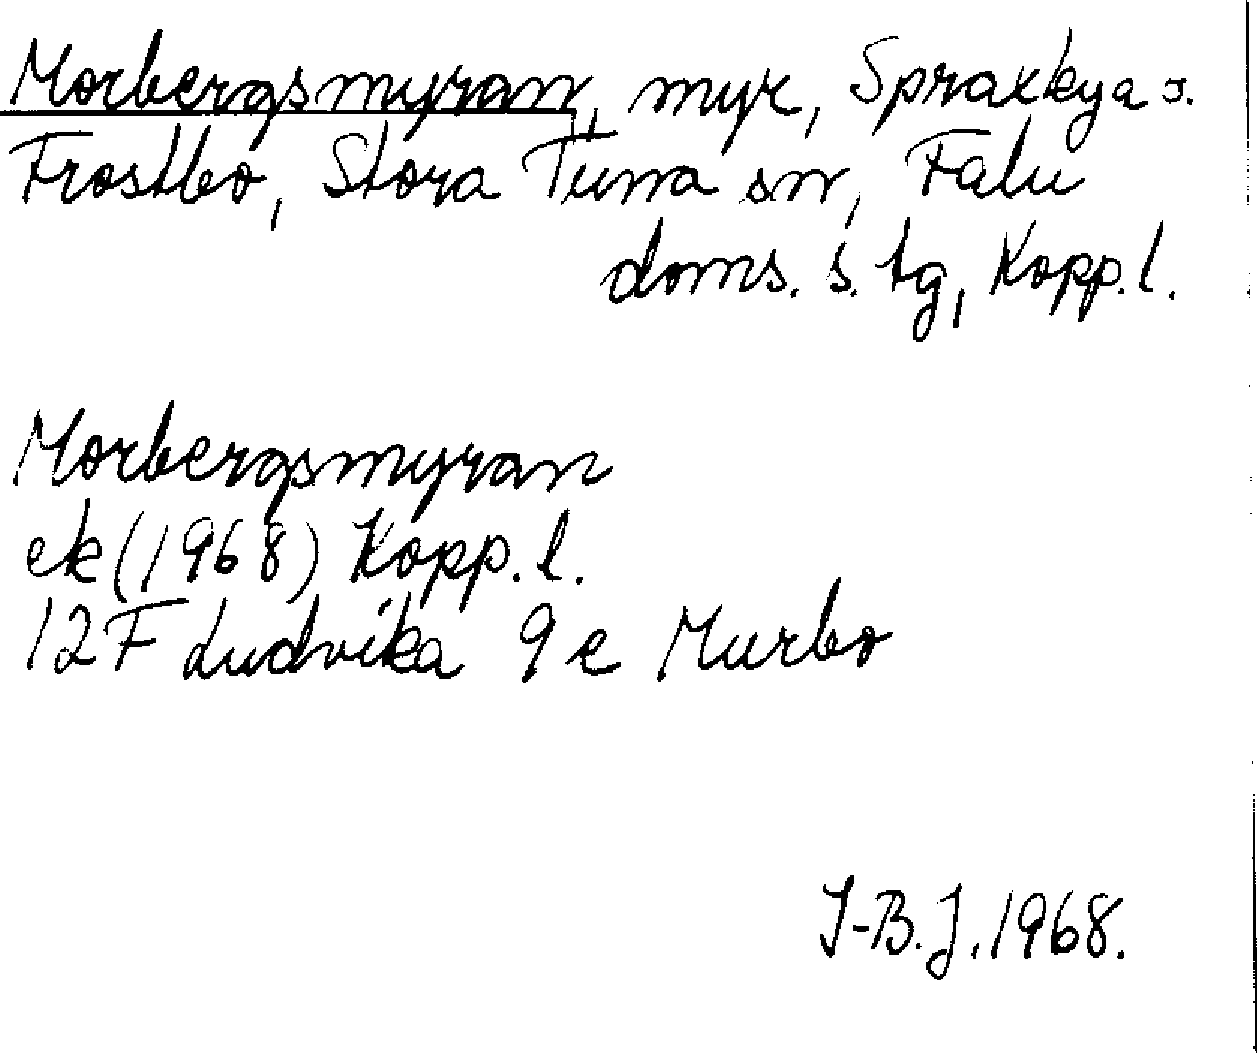 Morbergsmyran, myr, Spraxkya s.
Frostbo, Stora Tuna sn, Falu
doms. s. tg, Kopp. l.
Morbergsmyran
ek (1968) Kopp. l.
12F Ludvika 9e Murbo
I-B.J. 1968.